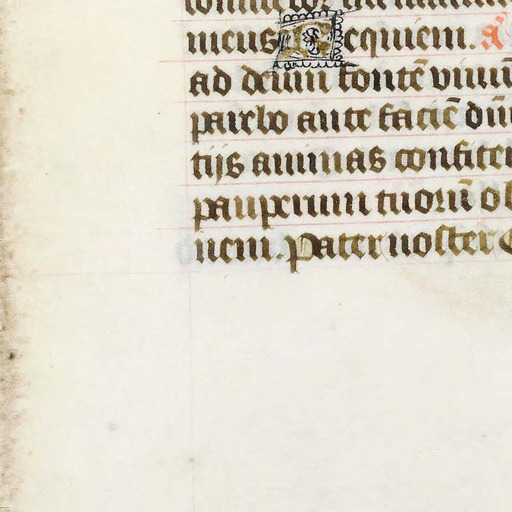 meus Requiem. a
ad deum fontē viuū
parebo ante faciē dñi
tijs animas confiten
pauperum tuorū ob
uem. Pater noster